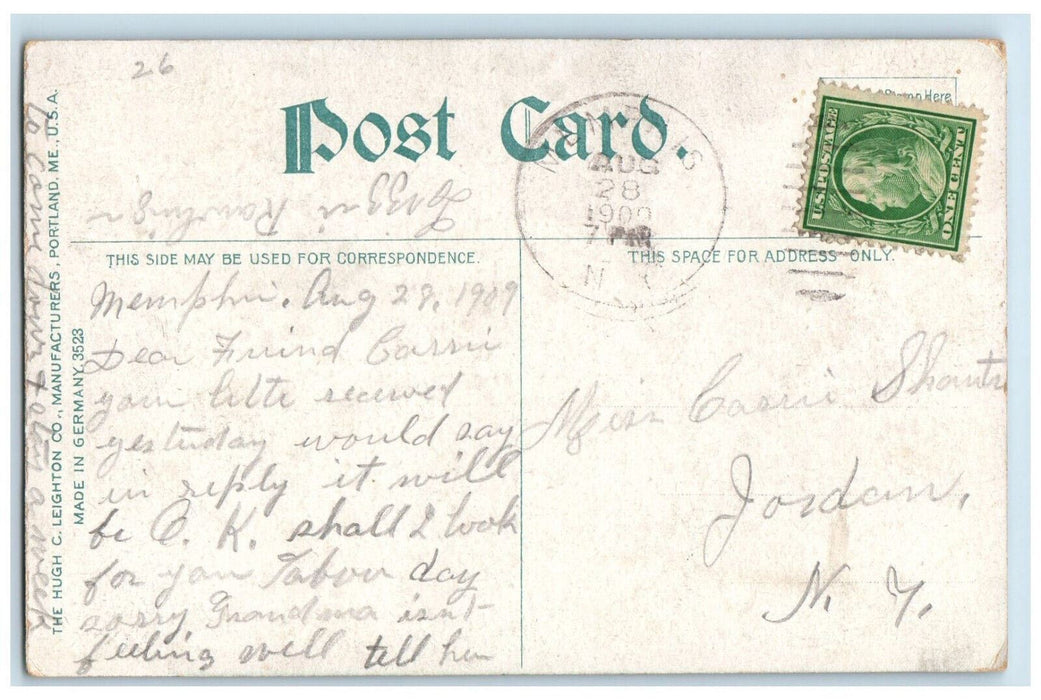 26
Post Card.
Stamp Here
U.S. POSTAGE
ONE CENT
MEMPHIS
AUG
28
1909
7 PM
N.Y.
THIS SIDE MAY BE USED FOR CORRESPONDENCE.
THIS SPACE FOR ADDRESS ONLY.
Memphis. Aug 28, 1909
Dear Friend Carrie
your letter received
yesterday would say
in reply it will
be O. K. shall I look
for you Labor day
sorry Grandma isnt
feeling well tell her
to come down & stay a week
Lizzie
Miss Carrie
Jordan,
N. Y.
THE HUGH C. LEIGHTON CO., MANUFACTURERS, PORTLAND, ME., U.S.A.
MADE IN GERMANY. 3523